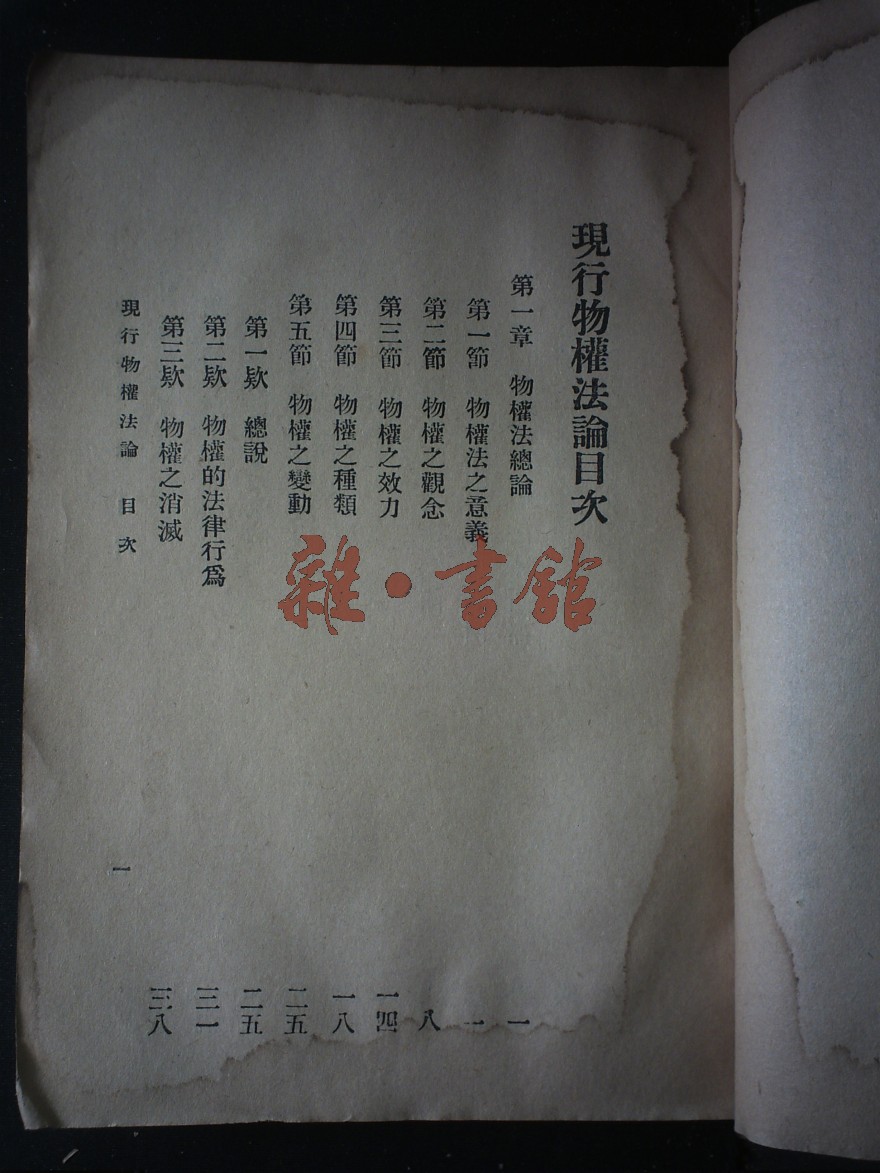 現行物權法論目次
第一章　物權法總論　一
第一節　物權法之意義　一
第二節　物權之觀念　八
第三節　物權之效力　一四
第四節　物權之種類　一八
第五節　物權之變動　二五
第一欵　總說　二五
第二欵　物權的法律行爲　三一
第三欵　物權之消滅　三八
現行物權法論　目次　一
雜·書館